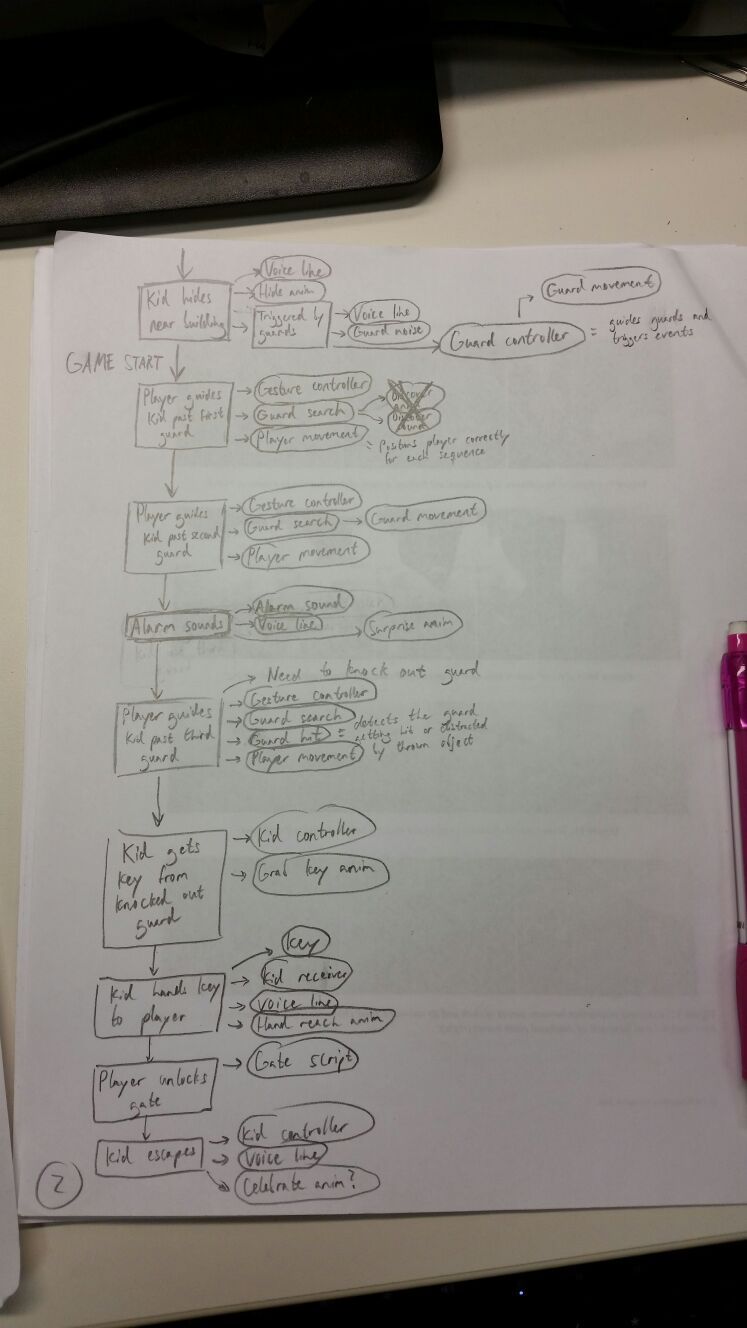 Voice line
Kid hides
near building
Hide anim
Triggered by
guards
Voice line
Guard noise
Guard controller
Guard movement
= guides guards and
triggers events
GAME START
Player guides
Kid past first
guard
Gesture controller
Guard search
Discover
anim
Discover
sound
Player movement
= Positions player correctly
for each sequence
Player guides
Kid past second
guard
Gesture controller
Guard search
Guard movement
Player movement
Alarm sounds
Alarm sound
Voice line
Surprise anim
Player guides
Kid past third
guard
Need to knock out guard
Gesture controller
Guard search
Guard hit
= detects the guard
getting hit or distracted
by thrown object
Player movement
Kid gets
key from
knocked out
guard
Kid controller
Grab key anim
Kid hands key
to player
Key
Kid receiver
Voice line
Hand reach anim
Player unlocks
gate
Gate script
Kid escapes
Kid controller
Voice line
Celebrate anim?
2